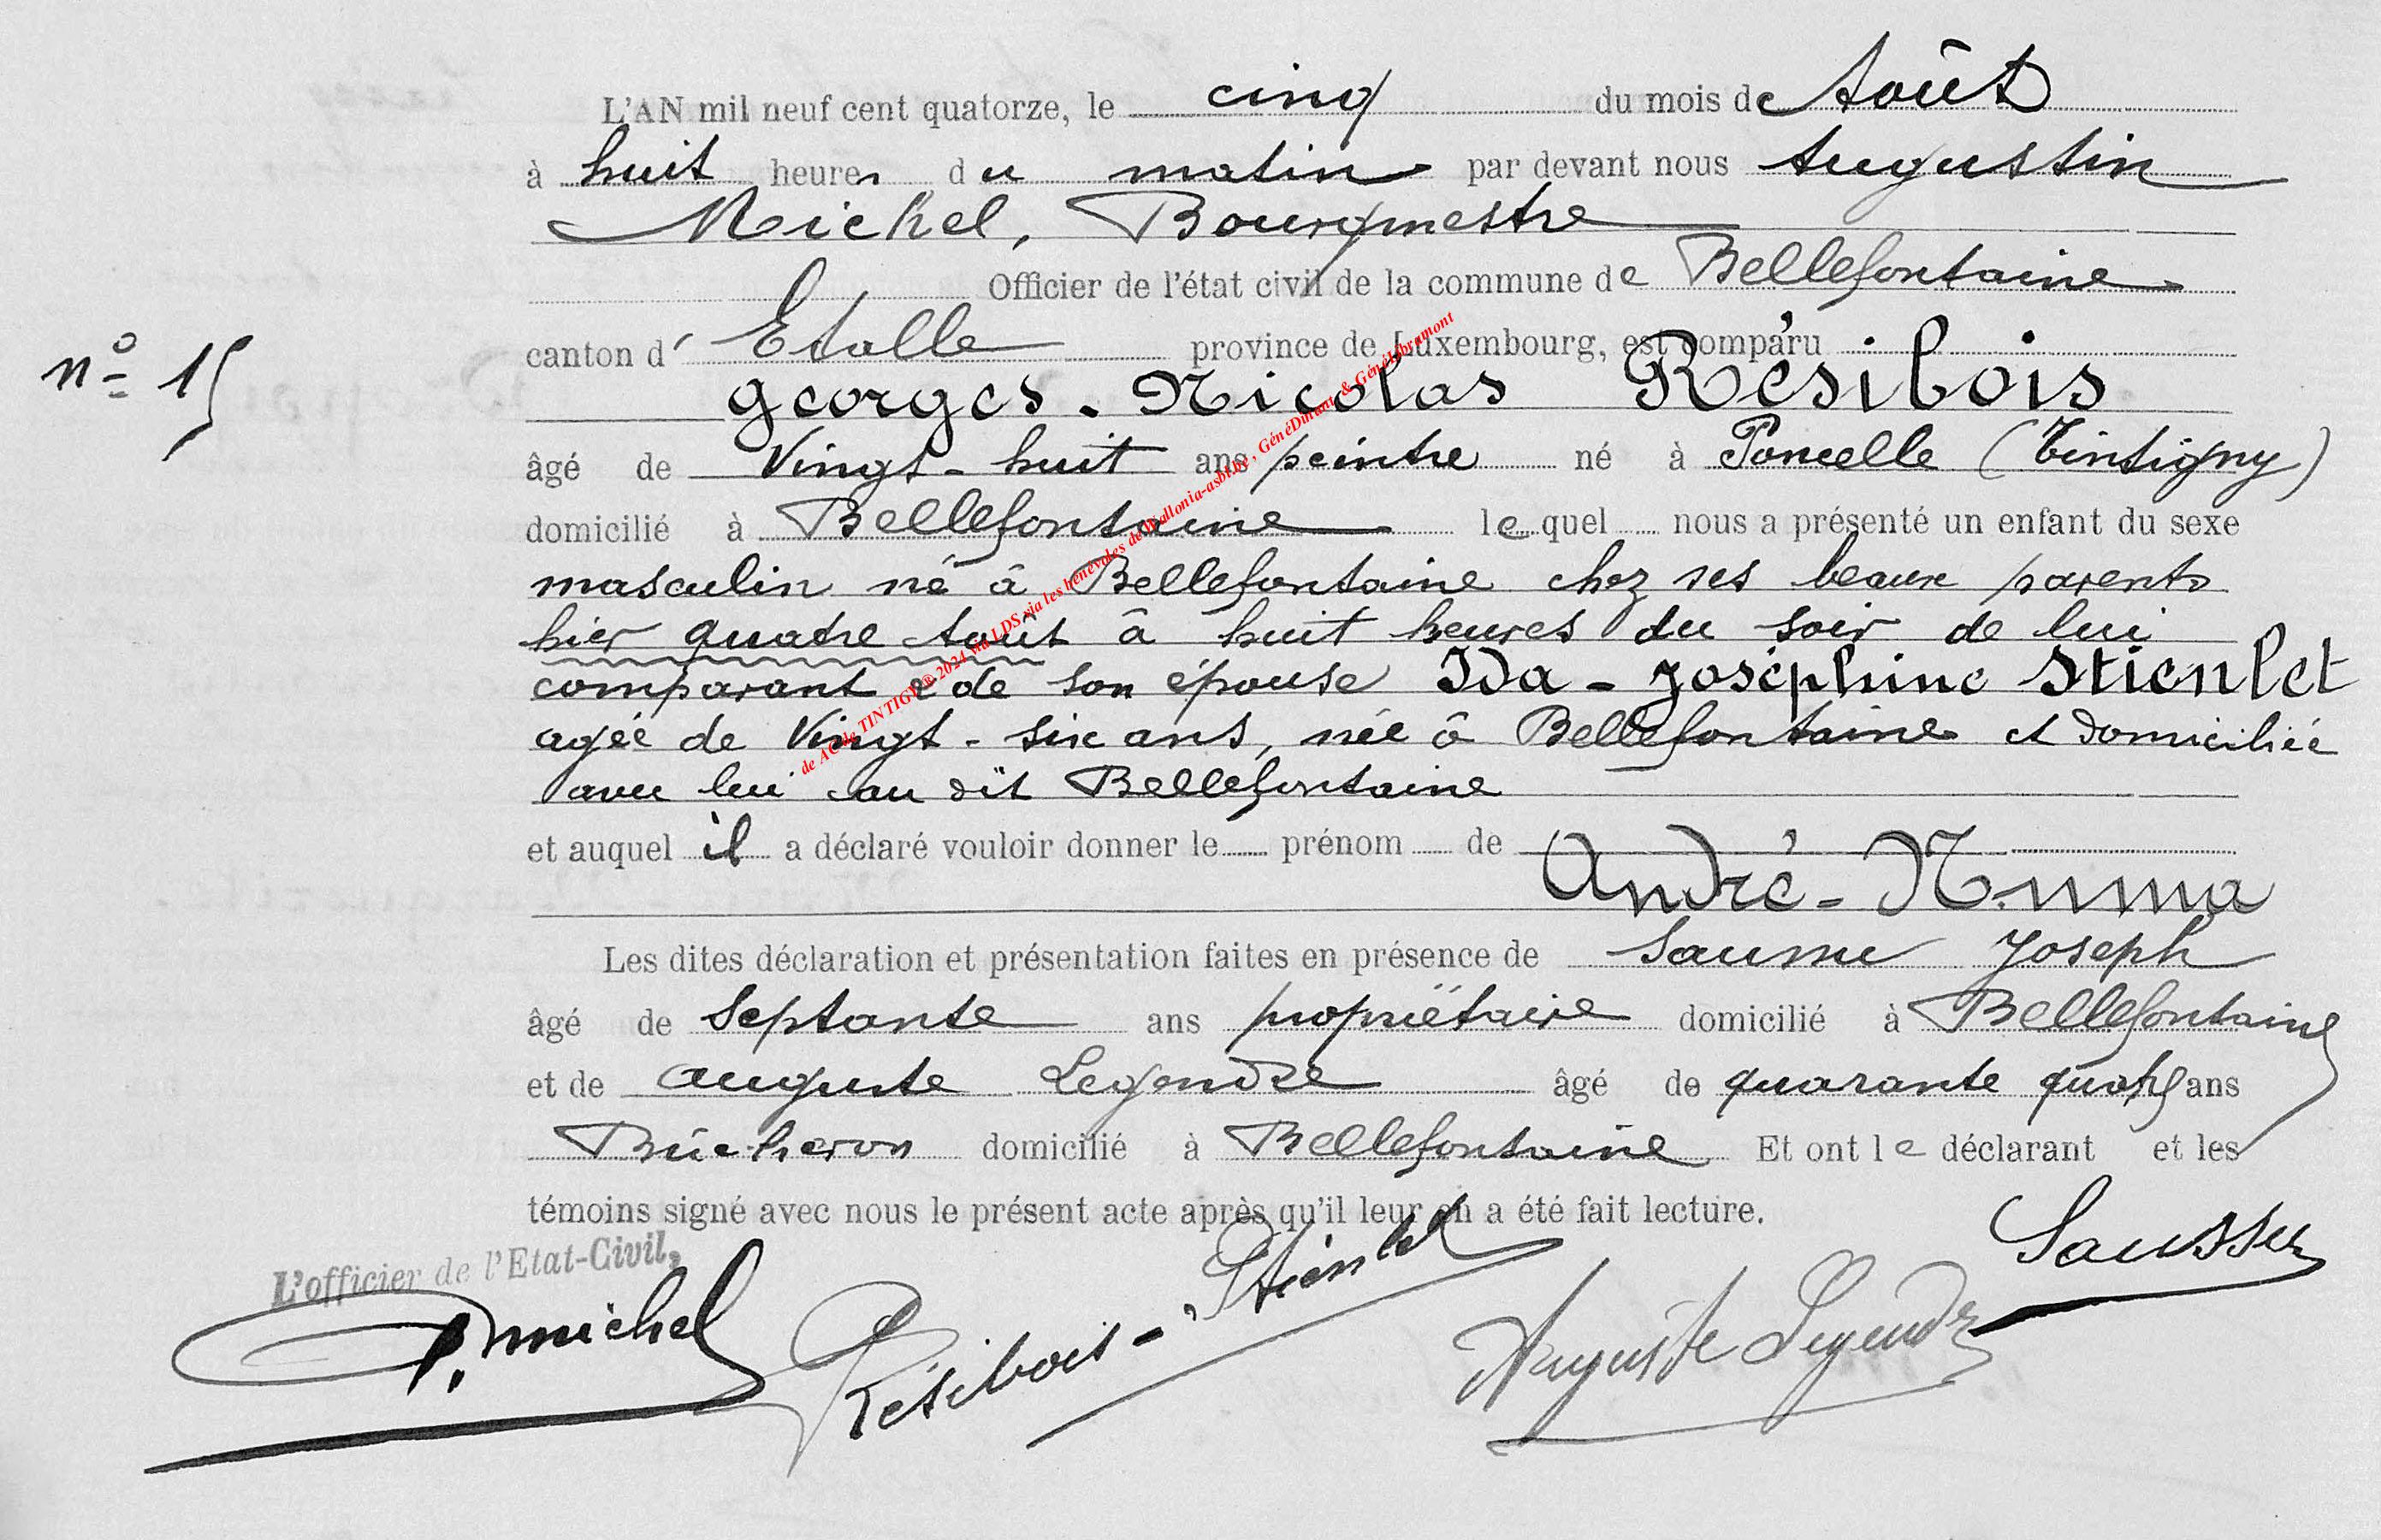 L'AN mil neuf cent quatorze, le cinq du mois de Août
à huit heures du matin par devant nous Augustin
Michel, Bourgmestre
Officier de l'état civil de la commune de Bellefontaine
canton d' Etalle province de Luxembourg, est comparu
n° 15
Georges-Nicolas Résibois
âgé de Vingt-huit ans peintre né à Poncelle (Tintigny)
domicilié à Bellefontaine lequel nous a présenté un enfant du sexe
masculin né à Bellefontaine chez ses beaux parents
hier quatre Août à huit heures du soir de lui
comparant & de son épouse Ida-Joséphine Stienlet
agée de Vingt-six ans, née à Bellefontaine et domiciliée
avec lui au dit Bellefontaine
et auquel il a déclaré vouloir donner le prénom de
André-Numa
Les dites déclaration et présentation faites en présence de Joseph
âgé de Septante ans propriétaire domicilié à Bellefontaine
et de Auguste Legendre âgé de quarante quatre ans
Bûcheron domicilié à Bellefontaine Et ont le déclarant et les
témoins signé avec nous le présent acte après qu'il leur en a été fait lecture.
L'officier de l'Etat-Civil,
michel
Résibois-Stienlet
Auguste Legendre
de TINTIGNY ® 2024 via LDS via les bénévoles de Wallonia-asbl.be, GénéDinant & GénéLibramont